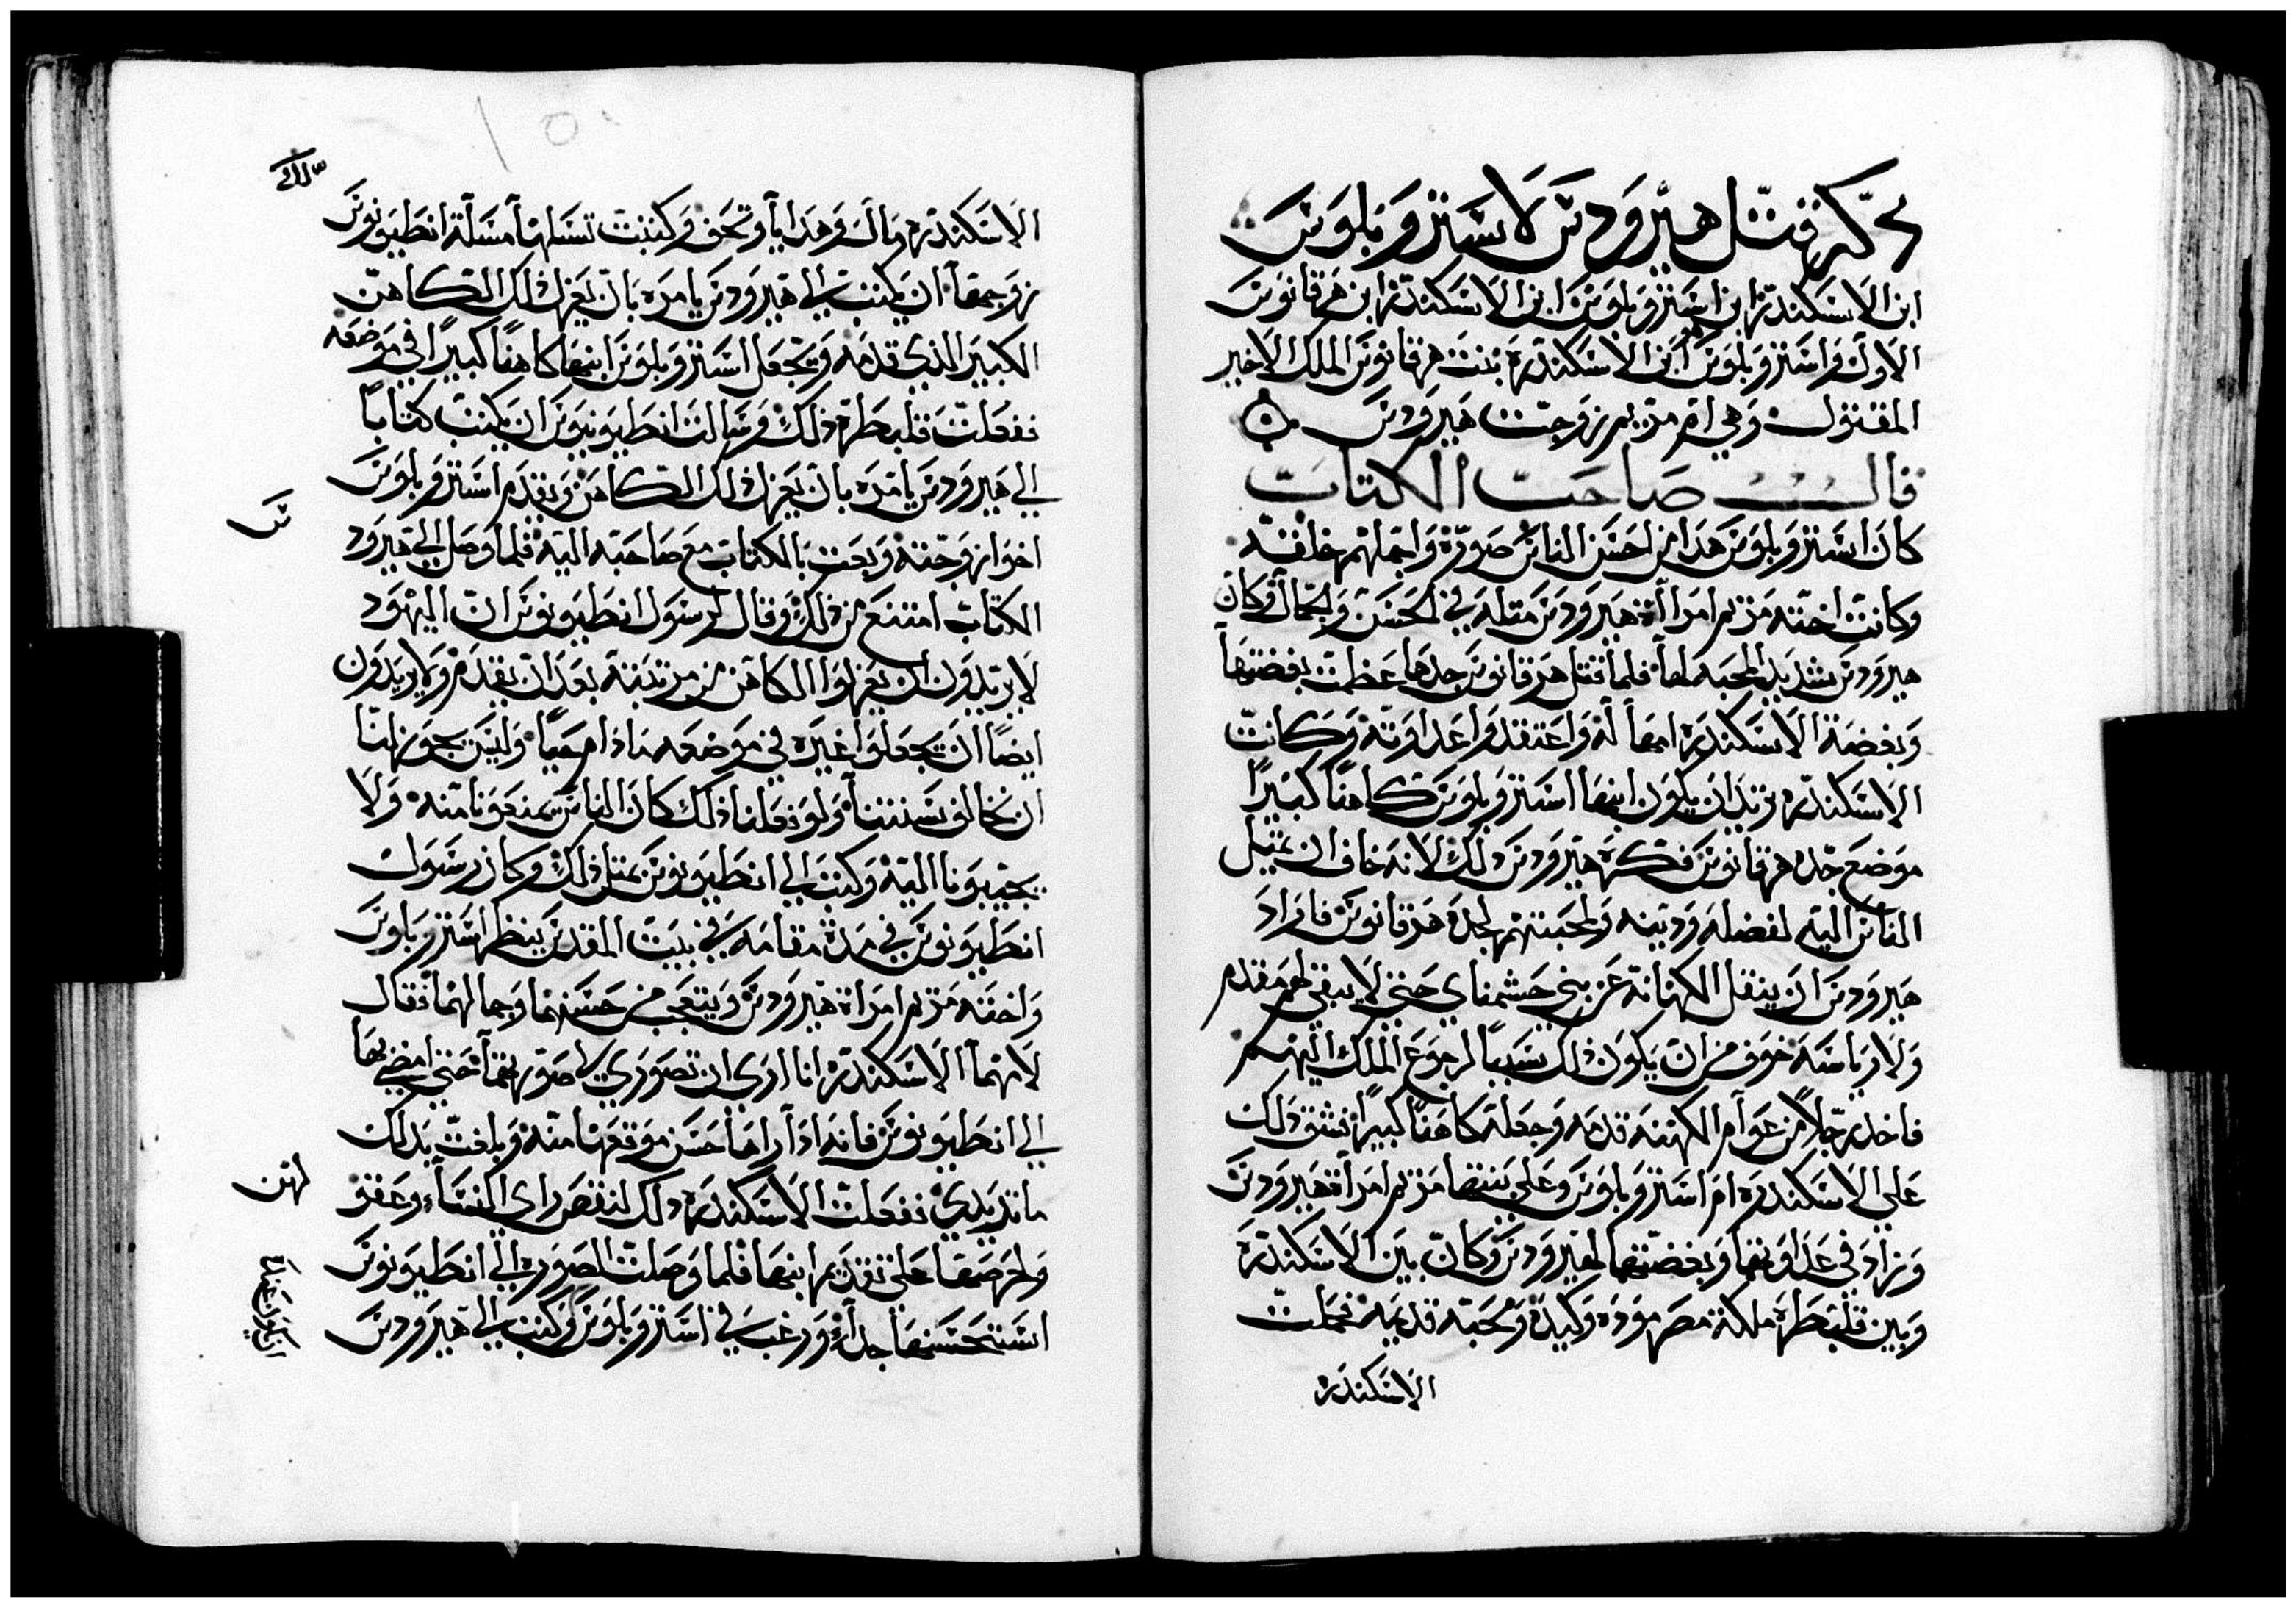 ذكر قتل هيرودس لاستروبلوس
ابن الاسكندر ابن استروبلوس ابن الاسكندر ابن هرقانوس
الاول واستروبلوس ابن الاسكندره بنت هرقانوس الملك الاخير
المقتول وهي ام مريم زوجت هيرودس
قال صاحب الكتاب
كان استروبلوس هذا من احسن الناس صورة واجملهم خلقه
وكانت اخته مريم امراة هيرودس مثله في الحسن والجمال وكان
هيرودس شديد المحبه لها فلما قتل هرقانوس جدها عظمت بغضتها
وبغضة الاسكندره امها له واعتقدوا عداوته وكانت
الاسكندره تريد ان يكون ابنها استروبلوس كاهنا كبيرا
موضع جده هرقانوس فكره هيرودس ذلك لانه خاف ان تميل
الناس اليه لفضله ودينه ولمحبتهم لجده هرقانوس فاراد
هيرودس ان ينقل الكهنانة عن بني حشمناي حتى لا يبقى لهم مقدم
ولا رياسه خوف من ان يكون ذلك سببا لرجوع الملك اليهم
فاخد رجلا من عوام الكهنه قدمه وجعله كاهنا كبيرا فشق ذلك
على الاسكندره ام استروبلوس وعلى بنتها مريم امراة هيرودس
وزاد في عداوتها وبغضتها لهيرودس وكان بين الاسكندرة
وبين قلبطرة ملكة مصر موده وكيدة ومحبه قديمه فحملت
الاسكندره
الاسكندره مال وهدايا وتحف وكتبت تسلها مسلة انطيونوس
زوجها ان يكتب الي هيرودس يامره بان يعزل ذلك الكاهن
الكبير الذي قدمه ويجعل استروبلوس ابنها كاهنا كبيرا في موضعه
ففعلت قلبطرة ذلك وسالت انطيونيوس ان يكتب كتابا
الي هيرودس يامره بان يعزل ذلك الكاهن ويقدم استروبلوس
اخو زوجته وبعت بالكتاب مع صاحبه اليه فلما وصل الي هيرود
س
الكتاب امتنع من ذلك وقال لرسول انطيونوس ان اليهود
لا يريدون ان يعزلوا الكاهن من مرتبته بعد ان يقدم ولا يريدون
ايضا ان يجعلوا غيره في موضعه مادام حيا وليس يجوز لنا
ان نخالف سنتنا ولو فعلنا ذلك كان الناس يمنعونا منه ولا
يجيبونا اليه وكتب الي انطيونوس بمثل ذلك وكان رسول
انطيونوس في مدة مقامه في بيت المقدس ينظر استروبلوس
واخته مريم امراة هيرودس ويتعجب من حسنهما وجمالهما فقال
لامهما الاسكندره انا ارى ان تصوري لي صورتهما حتى امضي بها
الي انطيونوس فانه اذا راها حسن موقعها منه وبلغت بذلك
ما تريدي ففعلت الاسكندره ذلك لنقص راى النساء وعقو
لهن
ولحرصها على تقديم ابنها فلما وصلت الصوره الي انطيونوس
استحسنها جدا ورغب في استروبلوس وكتب الي هيرودس